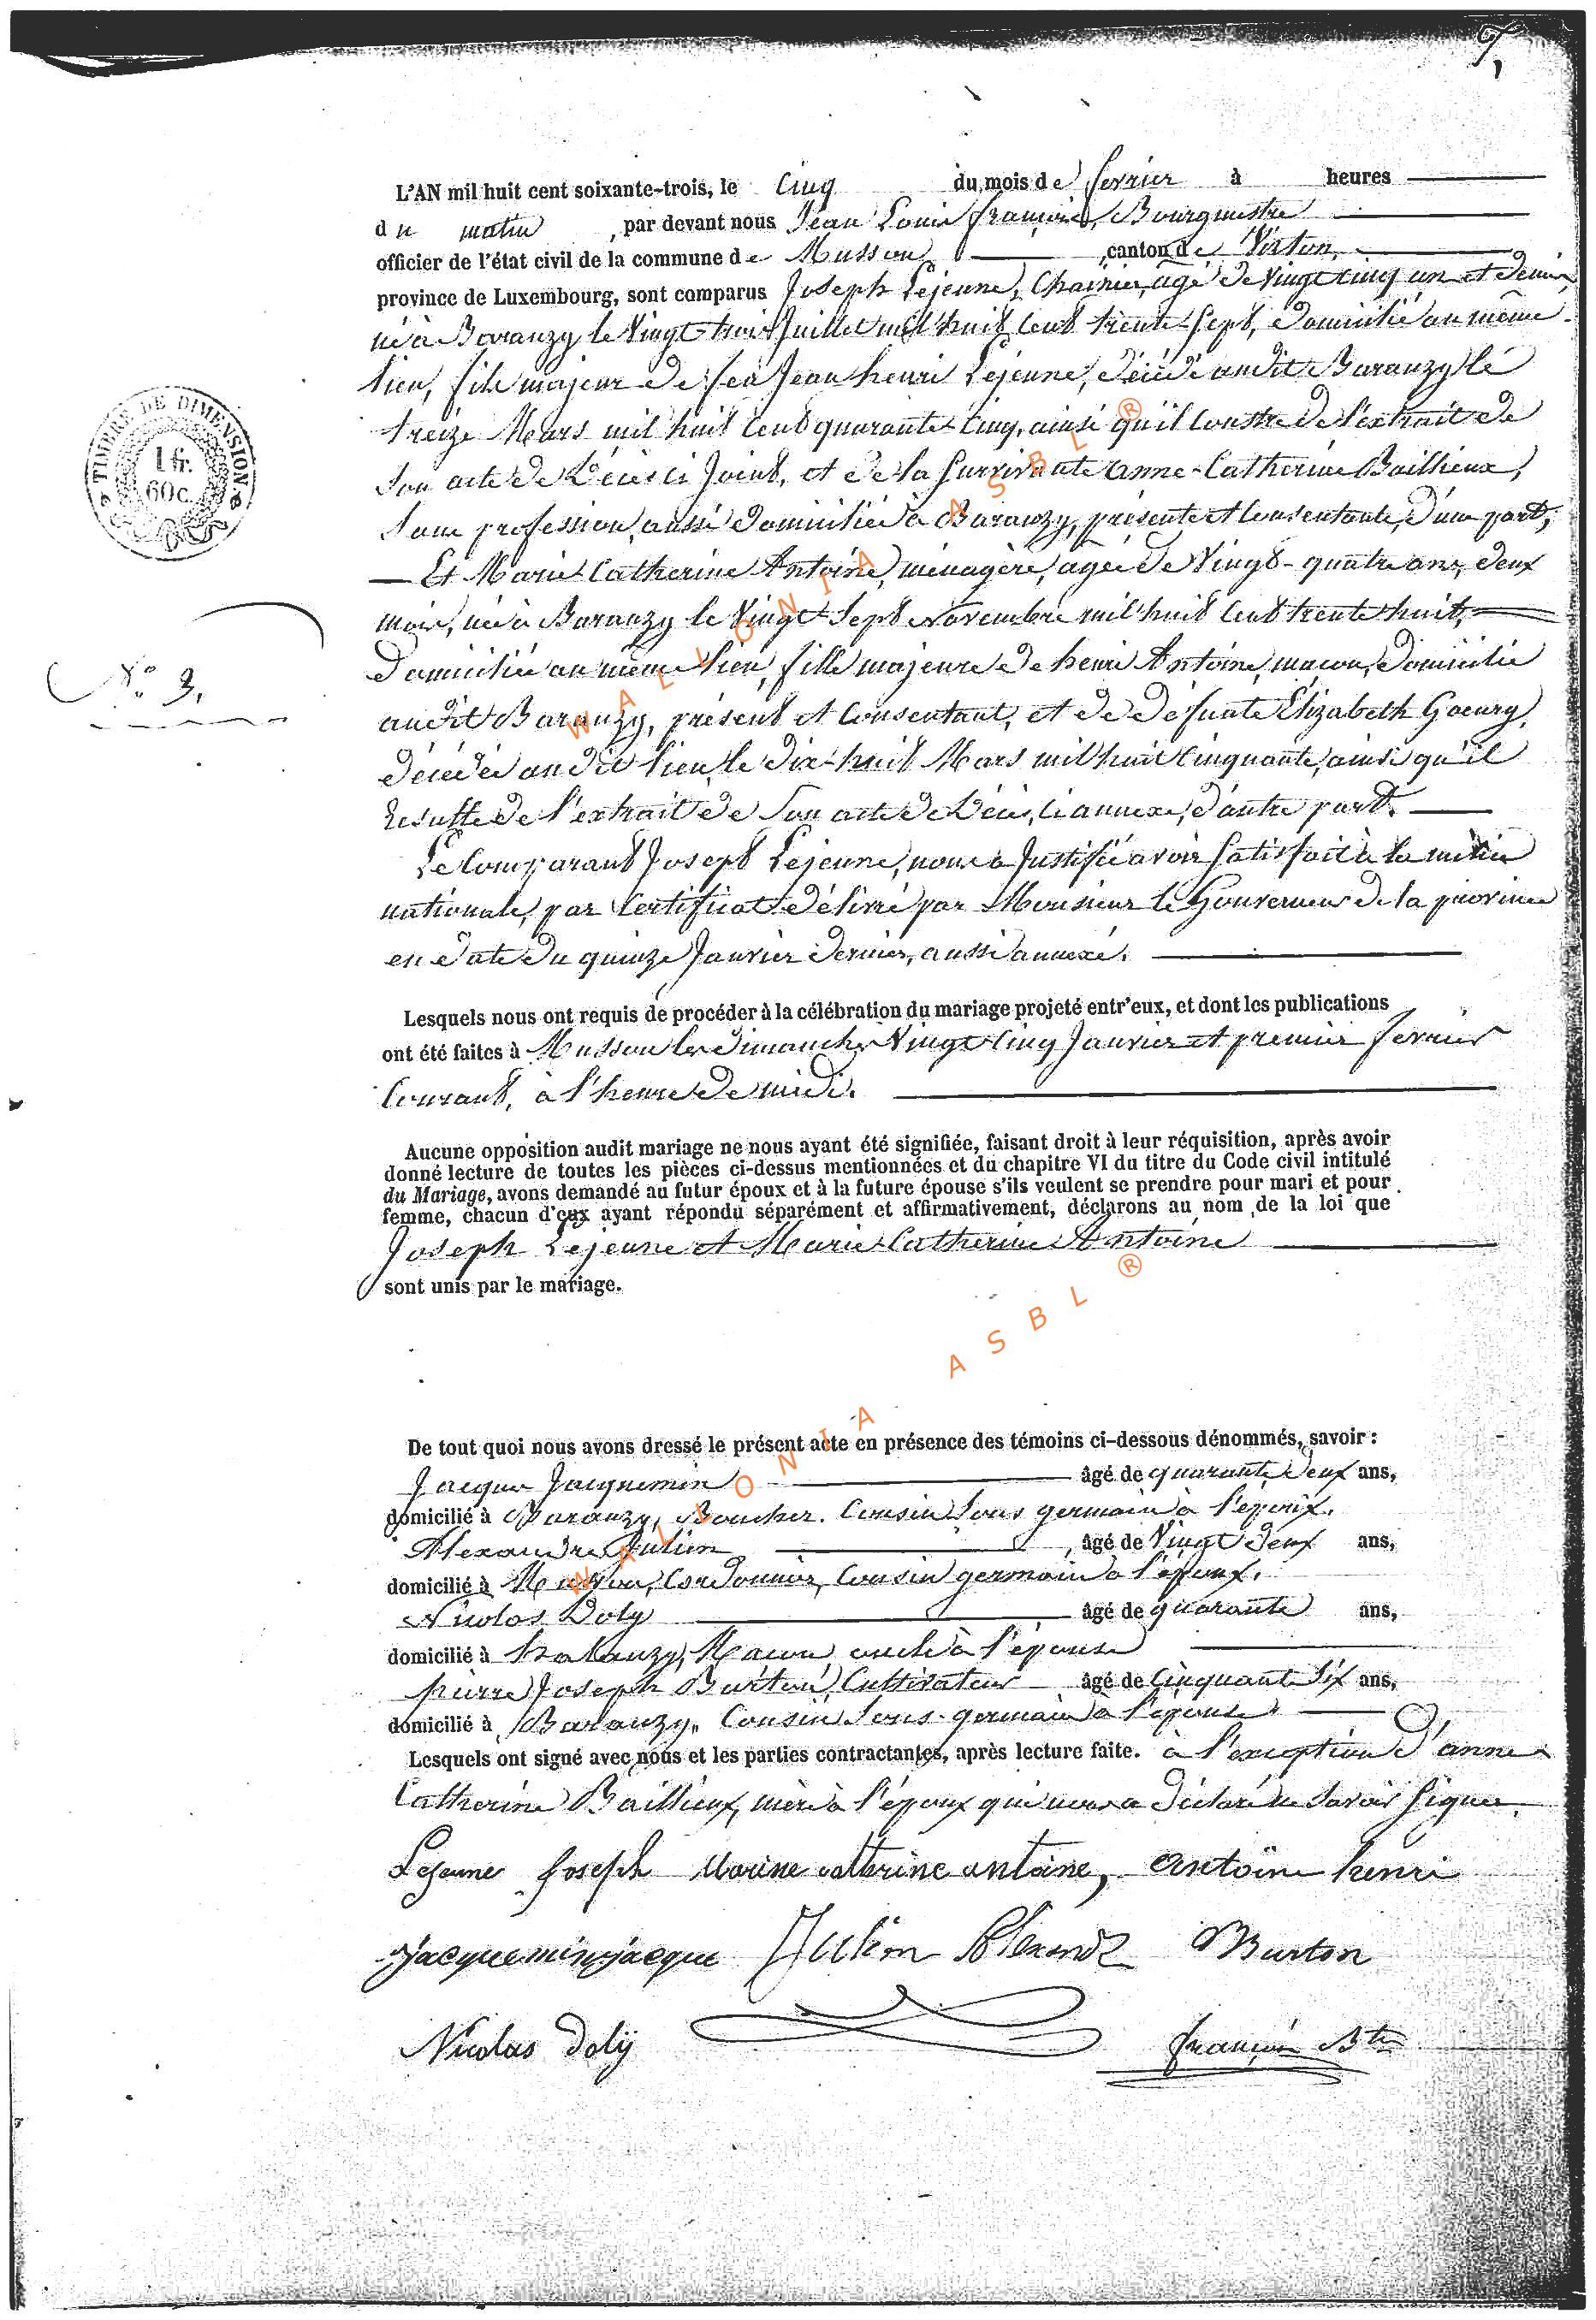 L'AN mil huit cent soixante-trois, le Cinq du mois de fevrier à heures
du matin, par devant nous Jean Louis françois, Bourgmestre
officier de l'état civil de la commune de Musson, canton de Virton,
province de Luxembourg, sont comparus Joseph Lejeune, âgé de Vingt cinq ans et demi,
né à Baranzy le Vingt trois Juillet mil huit Cent trente Sept, domicilié au même
lieu, fils majeur de feu Jean henri Lejeune, décédé audit Baranzy le
treize Mars mil huit Cent quarante Cinq, ainsi qu'il Conste de l'extrait de
Son acte de Décès ci Joint, et de la Survivante Anne-Catherine Baillieux,
Sans profession, aussi domiciliée à Baranzy, présente et Consentante, d'une part,
Et Marie Catherine Antoine, ménagère, agée de Vingt-quatre ans, deux
mois, née à Baranzy le Vingt Sept Novembre mil huit Cent trente huit,
Domiciliée au même lieu, fille majeure de henri Antoine, maçon, domicilié
audit Baranzy, présent et Consentant, et de défunte Élizabeth Goeury,
décédée audit lieu, le dix-huit Mars mil huit Cinquante, ainsi qu'il
Resulte de l'extrait de Son acte de Décès, ci annexé, d'autre part.
Le Comparant Joseph Lejeune, nous a Justifié avoir Satisfait à la milice
nationale, par Certificat délivré par Monsieur le Gouverneur de la province
en date du quinze Janvier dernier, aussi annexé.
Lesquels nous ont requis de procéder à la célébration du mariage projeté entr'eux, et dont les publications
ont été faites à Musson les Dimanches Vingt Cinq Janvier et premier fevrier
Courant, à l'heure de midi.
TIMBRE DE DIMENSION
1 fr.
60 c.
N° 3.
Aucune opposition audit mariage ne nous ayant été signifiée, faisant droit à leur réquisition, après avoir
donné lecture de toutes les pièces ci-dessus mentionnées et du chapitre VI du titre du Code civil intitulé
du Mariage, avons demandé au futur époux et à la future épouse s'ils veulent se prendre pour mari et pour
femme, chacun d'eux ayant répondu séparément et affirmativement, déclarons au nom de la loi que
Joseph Lejeune et Marie Catherine Antoine
sont unis par le mariage.
De tout quoi nous avons dressé le présent acte en présence des témoins ci-dessous dénommés, savoir :
Jacques Jacquemin âgé de quarante deux ans,
domicilié à Baranzy, Boucher. Cousin Sous germain à l'époux.
Alexandre Julien, âgé de Vingt deux ans,
domicilié à Musson, Cordonnier, Cousin germain à l'époux.
Nicolas Doly âgé de quarante ans,
domicilié à halanzy, Maçon, oncle à l'épouse
pierre Joseph Burton, Cultivateur âgé de Cinquante Six ans,
domicilié à Baranzy, Cousin Sous-germain à l'épouse.
Lesquels ont signé avec nous et les parties contractantes, après lecture faite. à l'exception d'anne
Catherine Baillieux, mère à l'époux qui nous a déclaré ne Savoir Signer.
Lejeune Joseph Marine cathrine antoine, Antoine henri
jacquemin jacque Julien Alexandre Burton
Nicolas Dolÿ françois Btre
WALLONIA ASBL ®
WALLONIA ASBL ®